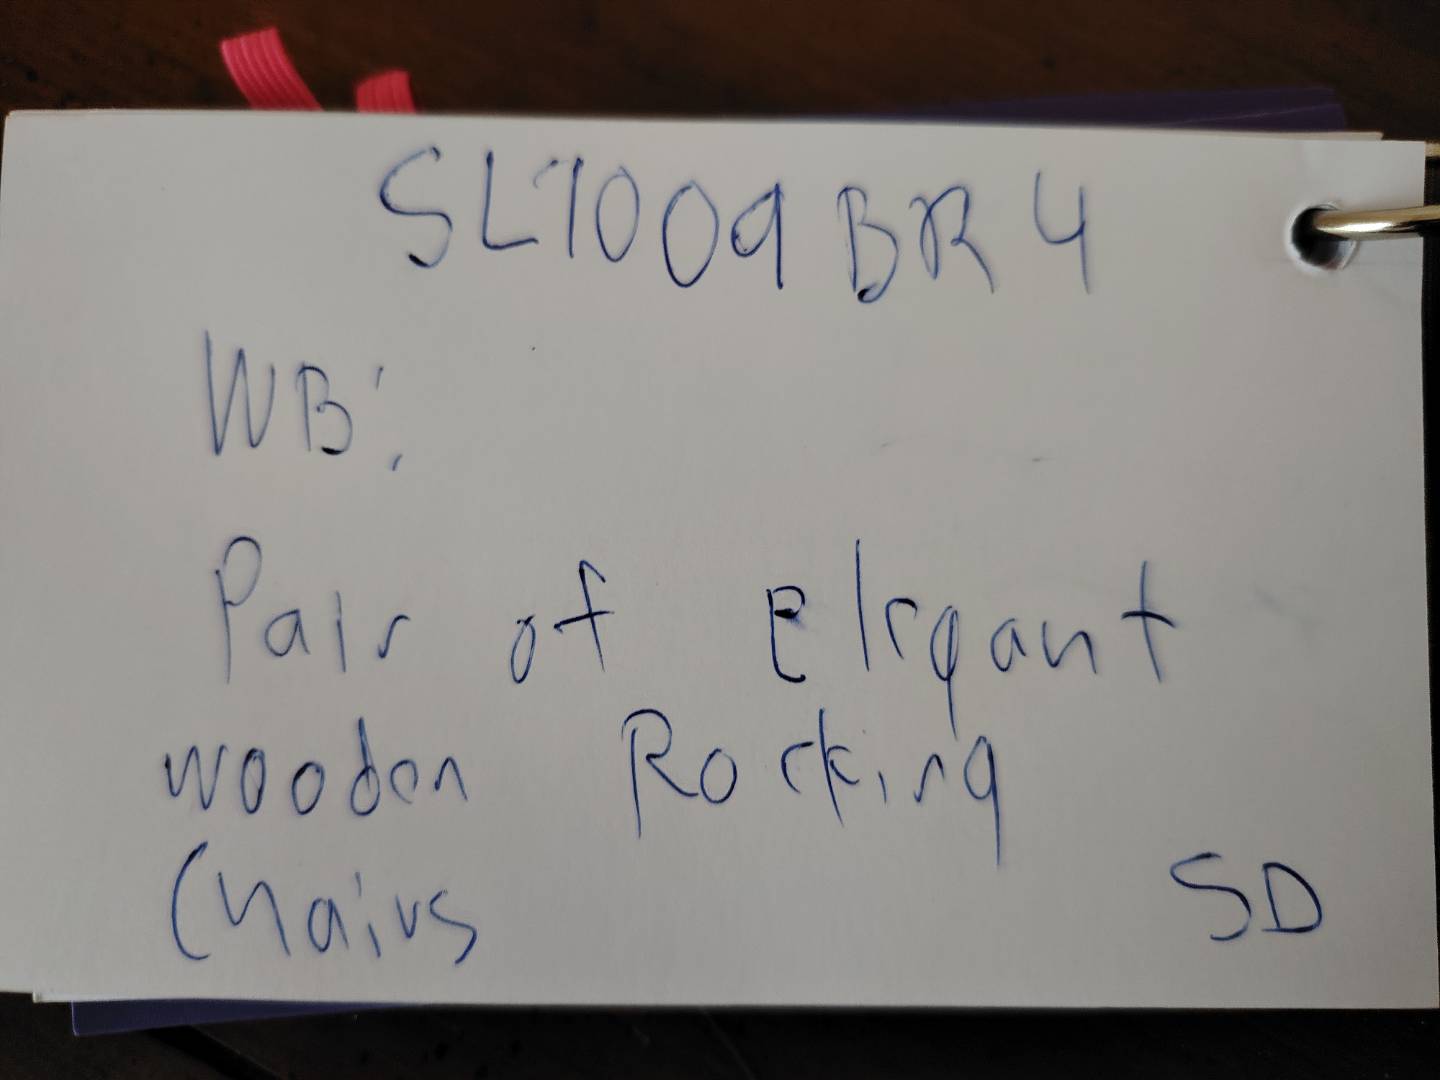 SL7009BR4
WB:
Pair of Elegant
wooden Rocking
Chairs
SD